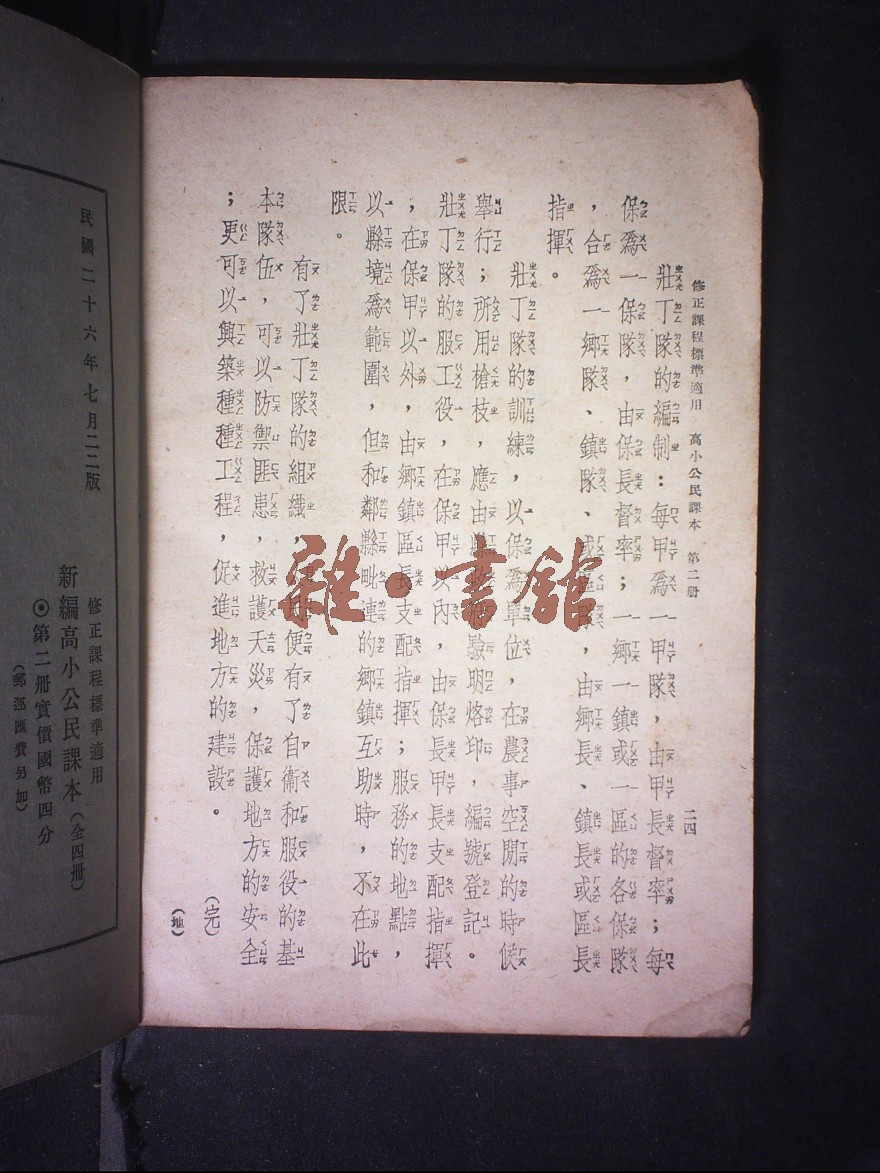 修正課程標準適用 高小公民課本 第二册
二四
壯丁隊的編制：每甲爲一甲隊，由甲長督率；每
保爲一保隊，由保長督率；一鄉一鎮或一區的各保隊
，合爲一鄉隊、鎮隊、或區隊，由鄉長、鎮長或區長
指揮。
壯丁隊的訓練，以保爲單位，在農事空閒的時候
舉行；所用槍枝，應由縣驗明烙印，編號登記。
壯丁隊的服工役，在保甲以內，由保長甲長支配指揮
；在保甲以外，由鄉鎮區長支配指揮；服務的地點，
以縣境爲範圍，但和鄰縣毗連的鄉鎮互助時，不在此
限。
有了壯丁隊的組織，便有了自衞和服役的基
本隊伍，可以防禦匪患，救護天災，保護地方的安全
；更可以興築種種工程，促進地方的建設。
（完）
（地）
雜·書館
民國二十六年七月二二版
修正課程標準適用
新編高小公民課本（全四册）
◎第二册實價國幣四分
（郵運匯費另加）